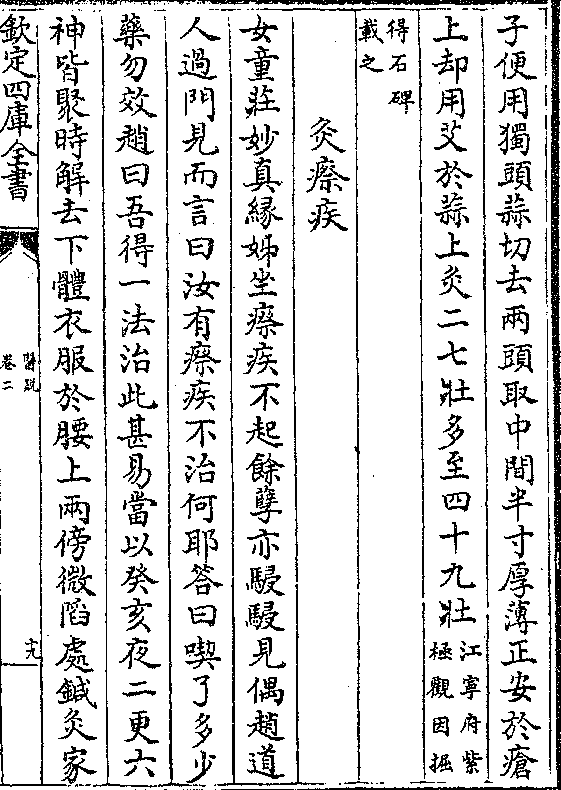 子便用獨頭蒜切去兩頭取中間半寸厚薄正安於瘡
上却用艾於蒜上灸二七壯多至四十九壯江寧府紫
極觀因掘
得石碑
載之
灸瘵疾
女童莊妙真緣姊坐瘵疾不起餘孽亦駸駸見偶趙道
人過門見而言曰汝有瘵疾不治何耶答曰喫了多少
藥勿效趙曰吾得一法治此甚易當以癸亥夜二更六
神皆聚時解去下體衣服於腰上兩傍微陷處鍼灸家
欽定四庫全書
醫說
卷二
十九